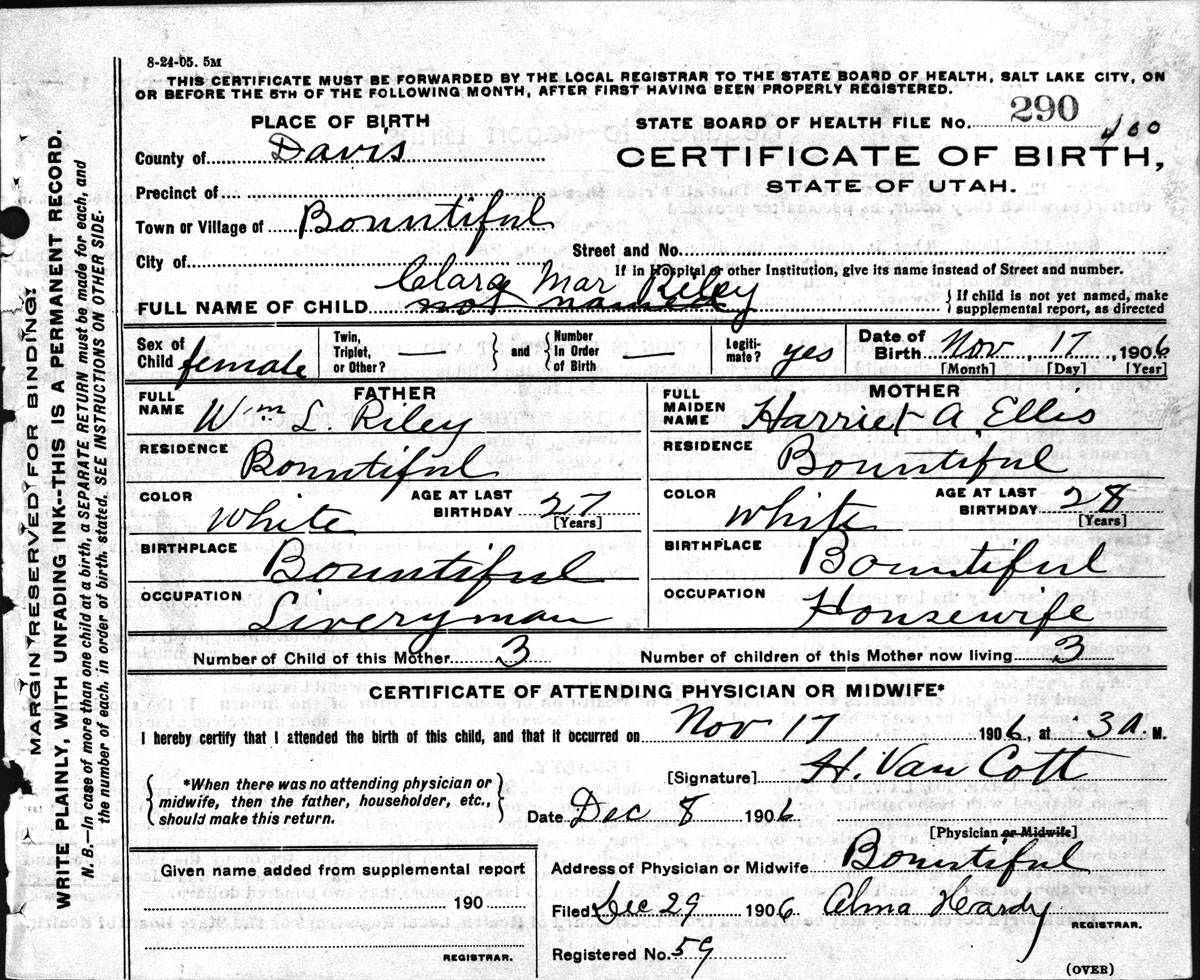 8-24-05. 5M
THIS CERTIFICATE MUST BE FORWARDED BY THE LOCAL REGISTRAR TO THE STATE BOARD OF HEALTH, SALT LAKE CITY, ON
OR BEFORE THE 5TH OF THE FOLLOWING MONTH, AFTER FIRST HAVING BEEN PROPERLY REGISTERED.
PLACE OF BIRTH
STATE BOARD OF HEALTH FILE No. 290
400
County of Davis
CERTIFICATE OF BIRTH,
STATE OF UTAH.
Precinct of
Town or Village of Bountiful
Street and No.
City of
If in Hospital or other Institution, give its name instead of Street and number.
Clara Mar Riley
FULL NAME OF CHILD not named
{If child is not yet named, make
supplemental report, as directed
Sex of
Child female
Twin,
Triplet,
or Other? —
} and {
Number
In Order
of Birth —
Legiti-
mate? yes
Date of
Birth Nov, 17, 1906
[Month] [Day] [Year]
FATHER
FULL
NAME Wm L. Riley
MOTHER
FULL
MAIDEN
NAME Harriet A. Ellis
RESIDENCE Bountiful
RESIDENCE Bountiful
COLOR White
AGE AT LAST
BIRTHDAY 27
[Years]
COLOR white
AGE AT LAST
BIRTHDAY 28
[Years]
BIRTHPLACE Bountiful
BIRTHPLACE Bountiful
OCCUPATION Liveryman
OCCUPATION Housewife
Number of Child of this Mother 3
Number of children of this Mother now living 3
CERTIFICATE OF ATTENDING PHYSICIAN OR MIDWIFE*
I hereby certify that I attended the birth of this child, and that it occurred on Nov 17 1906, at 3 A. M.
*When there was no attending physician or
midwife, then the father, householder, etc.,
should make this return.
[Signature] H. Van Cott
Date Dec 8 1906
[Physician or Midwife]
Given name added from supplemental report
190
REGISTRAR.
Address of Physician or Midwife Bountiful
Filed Dec 29 1906 Alma Hardy
REGISTRAR.
Registered No. 59
(OVER)
MARGIN RESERVED FOR BINDING.
WRITE PLAINLY, WITH UNFADING INK--THIS IS A PERMANENT RECORD.
N. B.—In case of more than one child at a birth, a SEPARATE RETURN must be made for each, and
the number of each, in order of birth, stated. SEE INSTRUCTIONS ON OTHER SIDE.